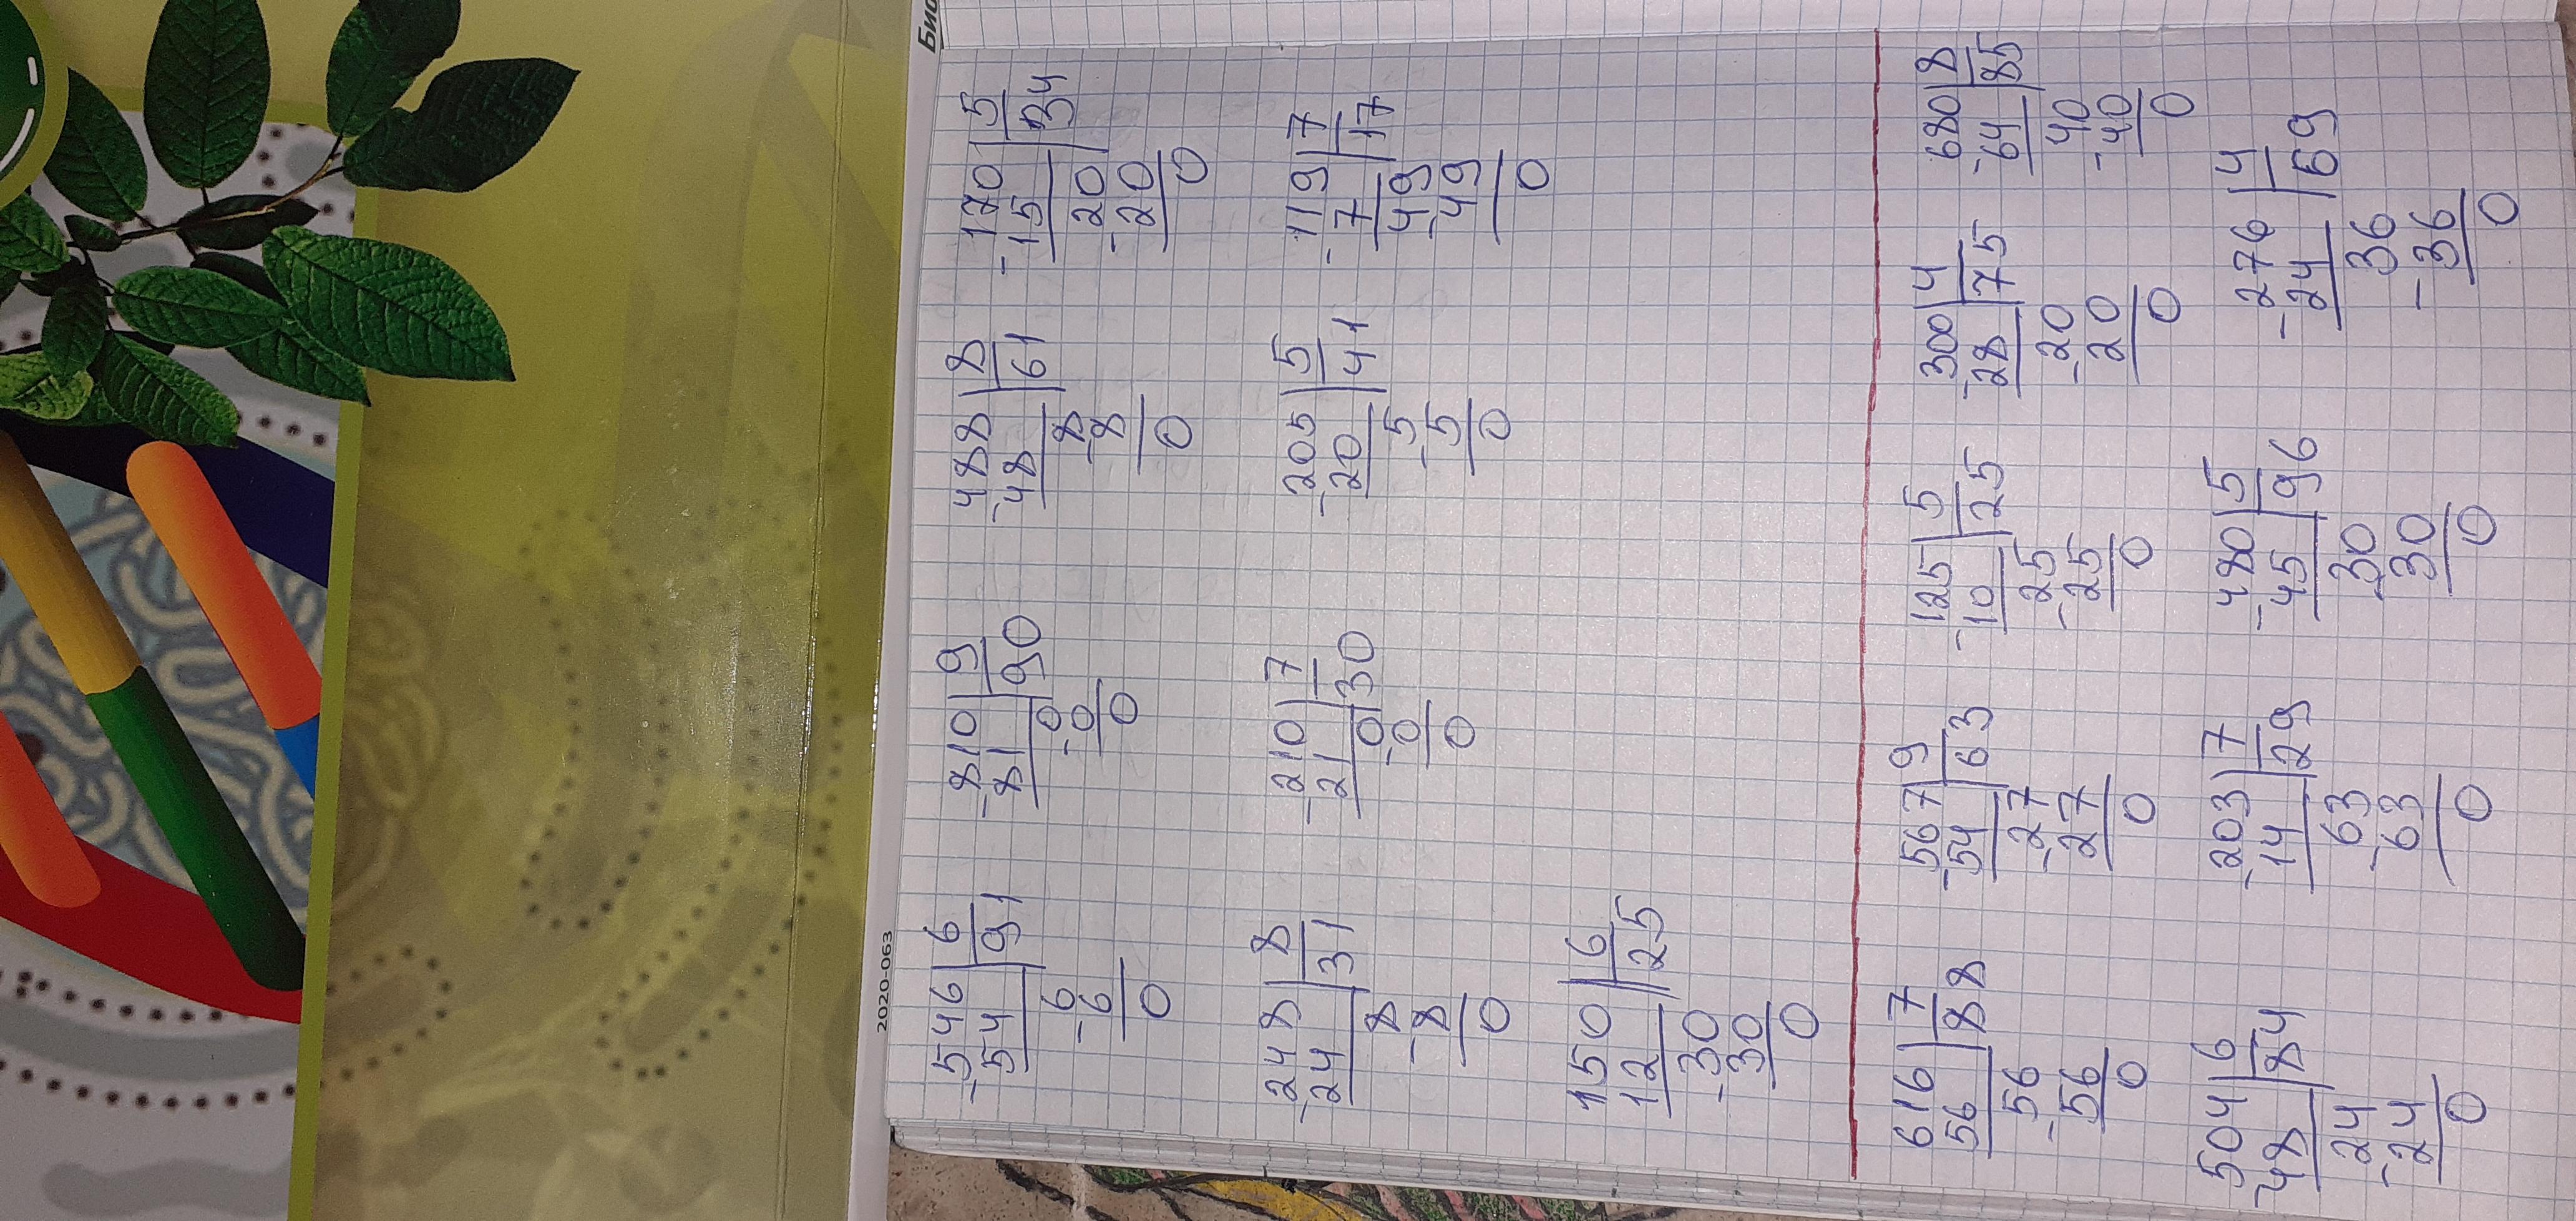 2020-063
Био
-546|6 -810|9 488|8 170|5
-54|91 -81|90 -48|61 -15|34
6 0 8 20
-6 -0 -8 -20
0 0 0 0
-248|8 -210|7 205|5 119|7
24|31 21|30 -20|41 -7|17
8 0 5 49
-8 -0 -5 -49
0 0 0 0
150|6
12|25
-30
30
0
616|7 -567|9 125|5 300|4 680|8
56|88 54|63 -10|25 -28|75 -64|85
56 -27 25 -20 40
-56 27 -25 20 -40
0 0 0 0 0
504|6 -203|7 480|5 -276|4
-48|84 14|29 -45|96 24|69
24 63 30 36
-24 -63 30 -36
0 0 0 0